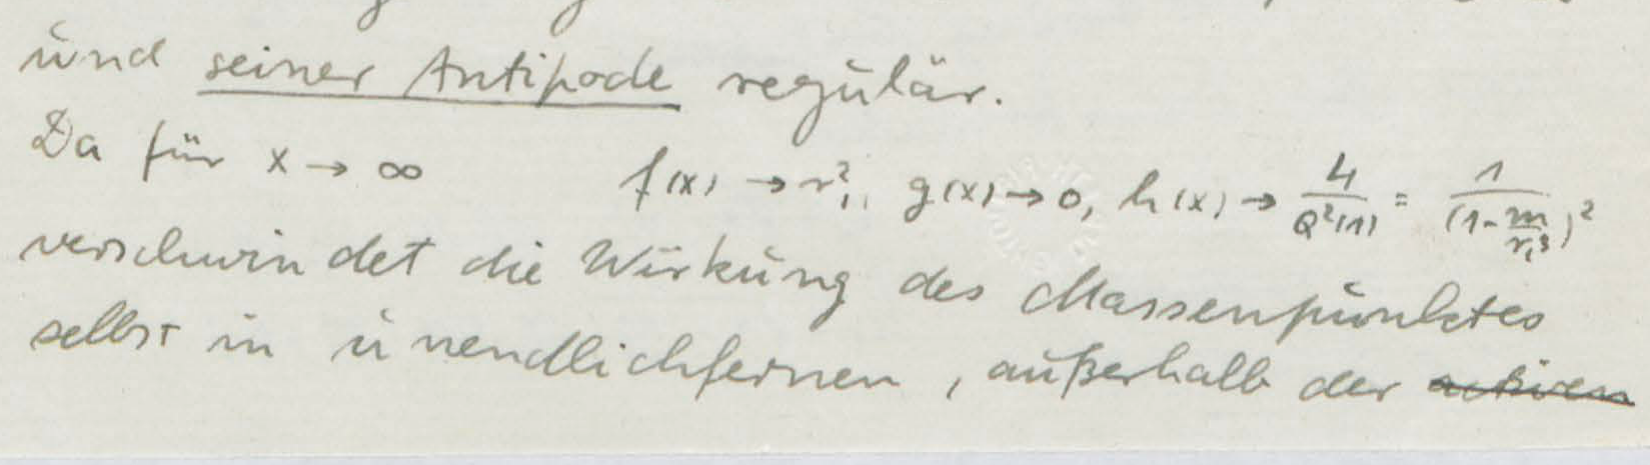 und seiner Antipode regulär.
Da für x → ∞ f(x) → r₁², g(x) → 0, h(x) → 4/Q²(1) = 1/(1-m/r₁³)²
verschwindet die Wirkung des Massenpunktes
selbst in unendlichfernen, außerhalb der